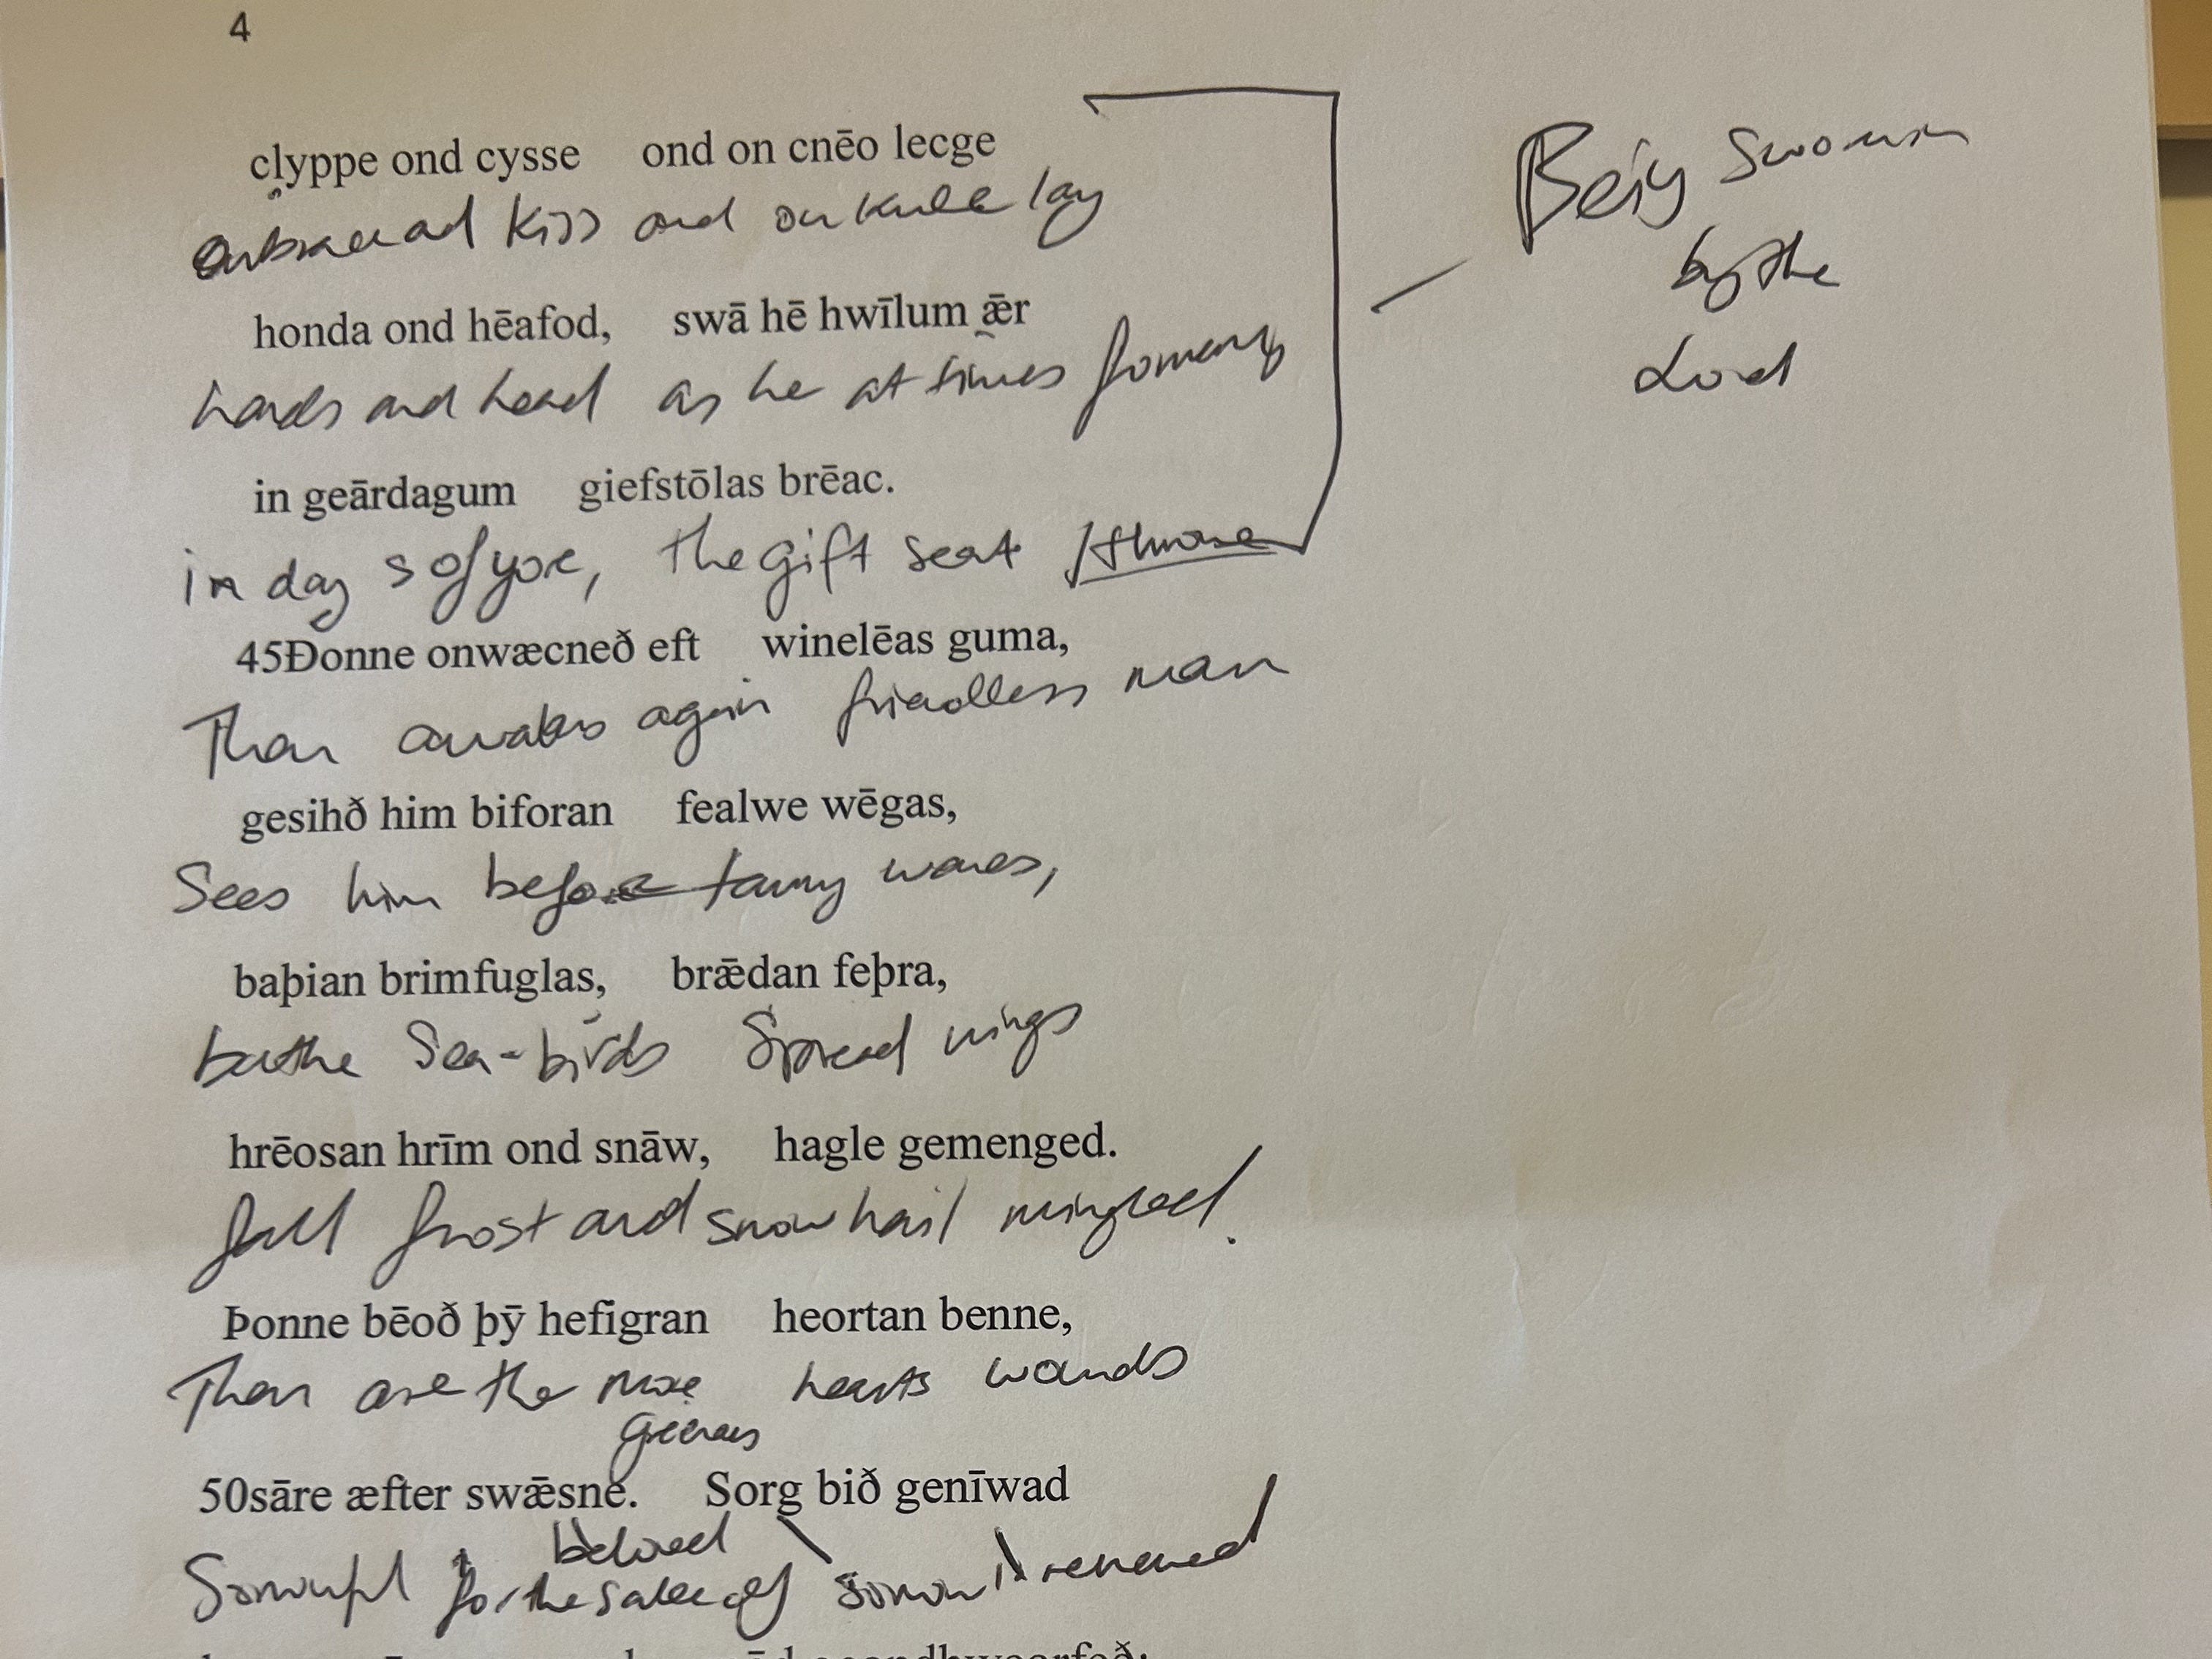 4
clyppe ond cysse ond on cnēo lecge
Embrace and kiss and on knee lay
honda ond hēafod, swā hē hwīlum ǣr
hands and head as he at times formerly
in geārdagum giefstōlas brēac.
in days of yore, the gift seat /throne
Being sworn
by the
Lord
45Ðonne onwæcneð eft winelēas guma,
Then awakes again friendless man
gesihð him biforan fealwe wēgas,
Sees him before tawny waves,
baþian brimfuglas, brǣdan feþra,
bathe Sea-birds Spread wings
hrēosan hrīm ond snāw, hagle gemenged.
fall frost and snow hail mingled.
Þonne bēoð þȳ hefigran heortan benne,
Then are the more hearts wounds
50sāre æfter swǣsne. Sorg bið genīwad
beloved
Sorrowful for the sake of sorrow is renewed